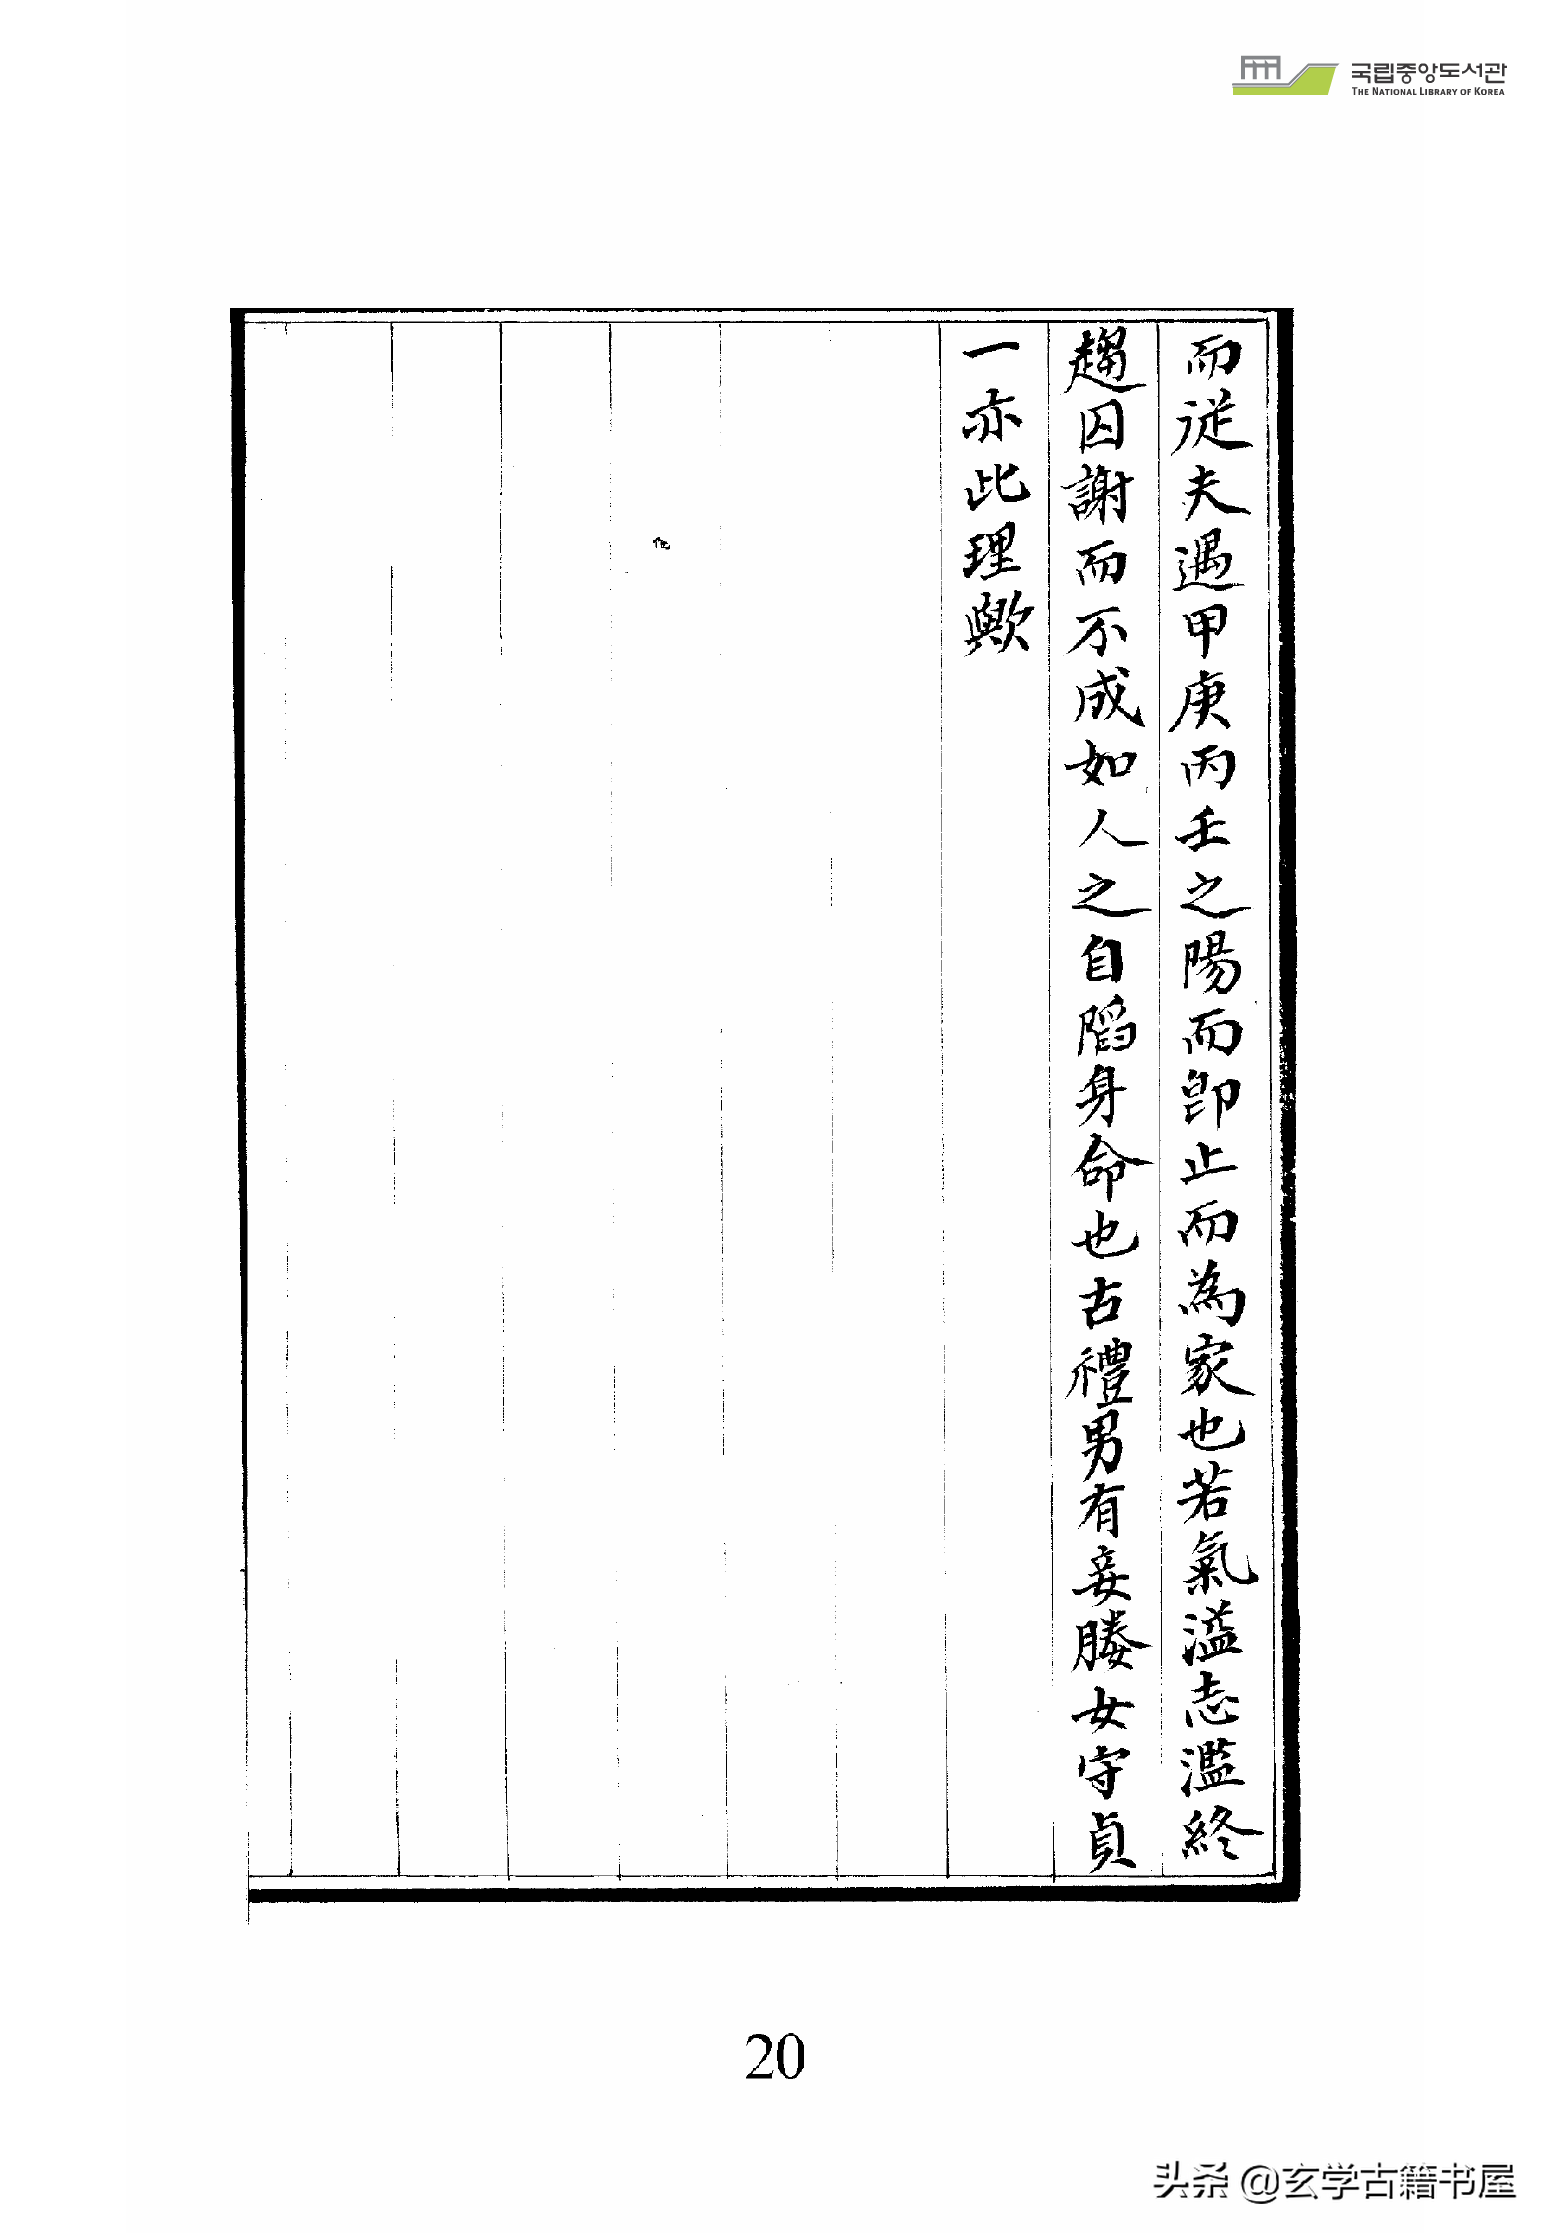 국립중앙도서관
THE NATIONAL LIBRARY OF KOREA
而從夫遇甲庚丙壬之陽而卽止而為家也若氣溢志濫終
趨囚謝而不成如人之自陷身命也古禮男有妾媵女守貞
一亦此理歟
20
头条 @玄学古籍书屋